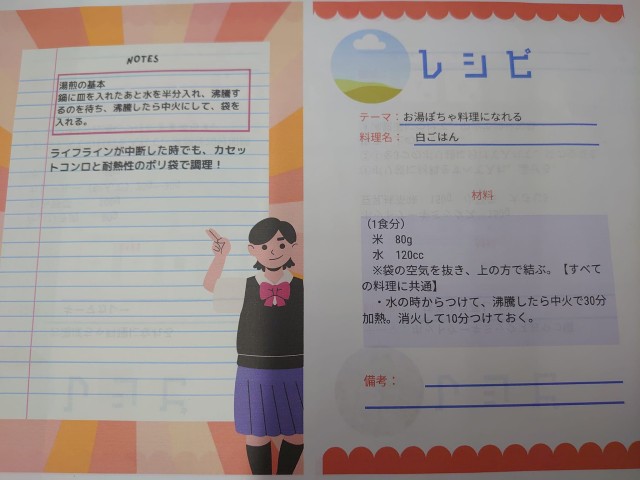 NOTES
湯煎の基本
鍋に皿を入れたあと水を半分入れ、沸騰す
るのを待ち、沸騰したら中火にして、袋を
入れる。
ライフラインが中断した時でも、カセッ
トコンロと耐熱性のポリ袋で調理！
レシピ
テーマ：お湯ぽちゃ料理になれる
料理名：　白ごはん
材料
（1食分）
米　80g
水　120cc
※袋の空気を抜き、上の方で結ぶ。【すべて
の料理に共通】
・水の時からつけて、沸騰したら中火で30分
加熱。消火して10分つけておく。
備考：